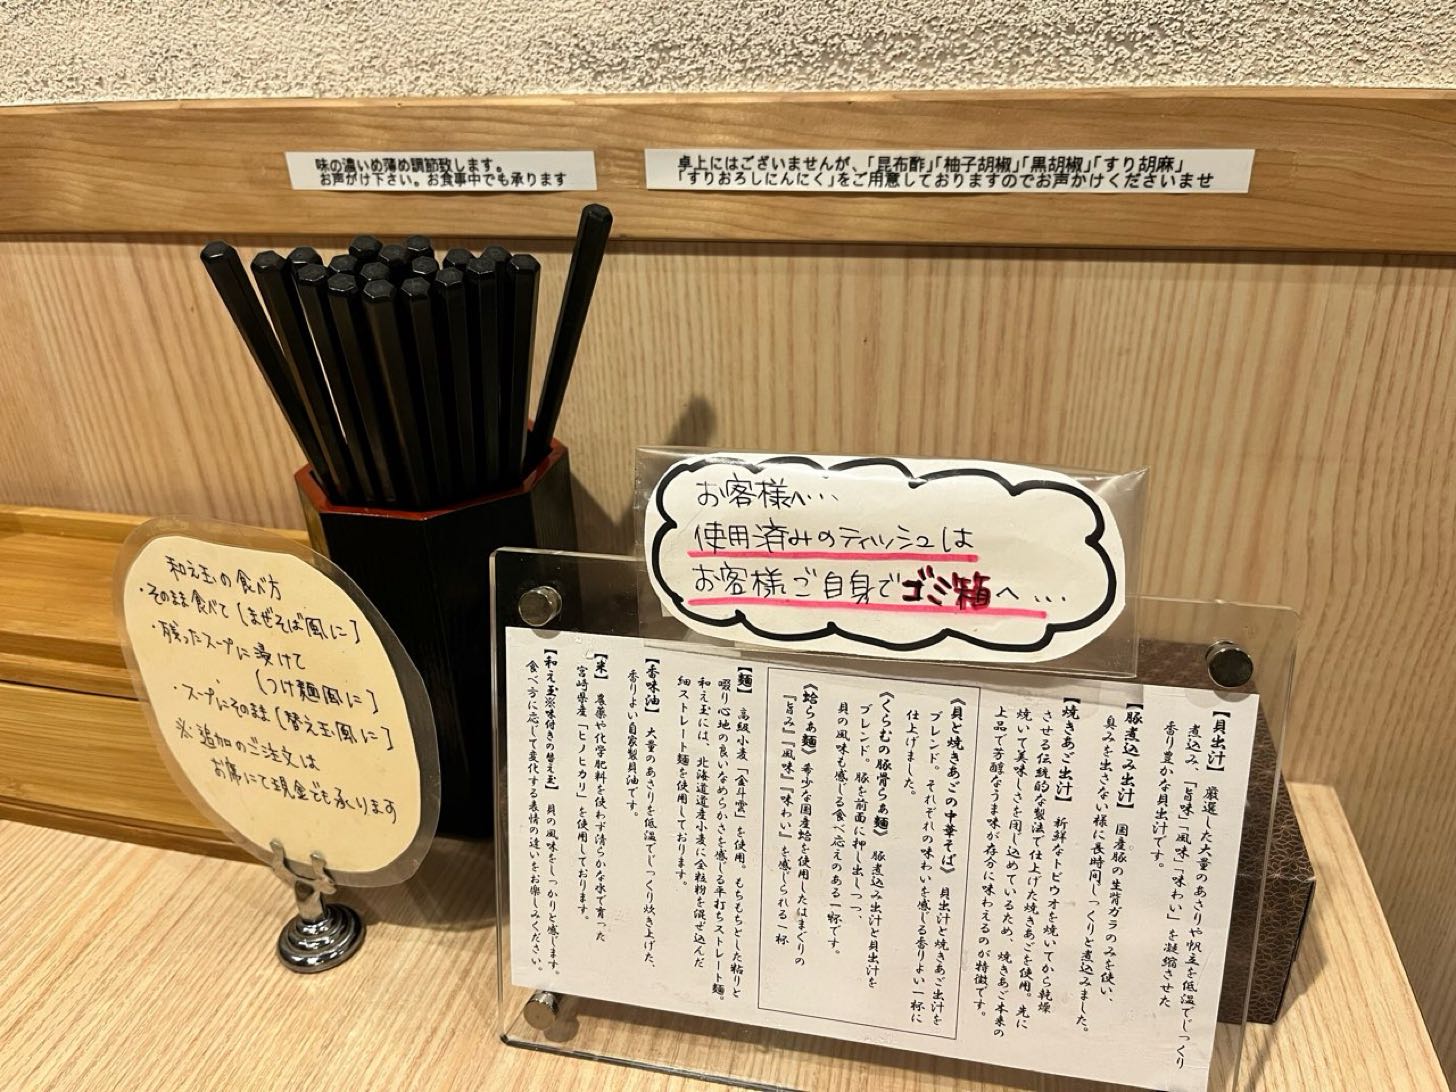 味の濃いめ薄め調節致します。
お声がけ下さい。お食事中でも承ります
卓上にはございませんが、「昆布酢」「柚子胡椒」「黒胡椒」「すり胡麻」
「すりおろしにんにく」をご用意しておりますのでお声かけくださいませ
お客様へ...
使用済みのティッシュは
お客様ご自身でゴミ箱へ...
和え玉の食べ方
・そのまま食べて[まぜそば風に]
・残ったスープに浸けて
(つけ麺風に]
・スープにそのまま[替え玉風に]
※追加のご注文は
お席にて現金でも承ります
【貝出汁】 厳選した大量のあさりや帆立を低温でじっくり
煮込み、「旨味」「風味」「味わい」を凝縮させた
香り豊かな貝出汁です。
【豚煮込み出汁】 国産豚の生背ガラのみを使い、
臭みを出さない様に長時間じっくりと煮込みました。
【焼きあご出汁】 新鮮なトビウオを焼いてから乾燥
させる伝統的な製法で仕上げた焼きあごを使用。先に
焼いて美味しさを閉じ込めているため、焼きあご本来の
上品で芳醇なうま味が存分に味わえるのが特徴です。
《貝と焼きあごの中華そば》 貝出汁と焼きあご出汁を
ブレンド。それぞれの味わいを感じる香りよい一杯に
仕上げました。
《くらむの豚骨らぁ麺》 豚煮込み出汁と貝出汁を
ブレンド。豚を前面に押し出しつつ、
貝の風味も感じる食べ応えのある一杯です。
《蛤らぁ麺》 希少な国産蛤を使用したはまぐりの
『旨み』『風味』『味わい』を感じられる一杯
【麺】 高級小麦「金斗雲」を使用。もちもちとした粘りと
啜り心地の良いなめらかさを感じる平打ちストレート麺。
和え玉には、北海道道産小麦に全粒粉を混ぜ込んだ
細ストレート麺を使用しております。
【香味油】 大量のあさりを低温でじっくり炊き上げた、
香りよい自家製貝油です。
【米】 農薬や化学肥料を使わず清らかな水で育った
宮崎県産「ヒノヒカリ」を使用しております。
【和え玉※味付きの替え玉】 貝の風味をしっかりと感じます。
食べ方に応じて変化する表情の違いをお楽しみください。